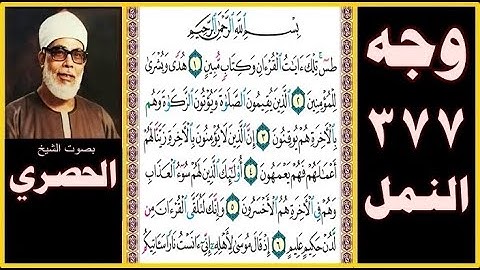 وجه
٣٧٧
النمل
بِسْمِ اللَّهِ الرَّحْمَٰنِ الرَّحِيمِ
طسٓ ۚ تِلْكَ ءَايَٰتُ الْقُرْءَانِ وَكِتَابٍ مُّبِينٍ ١ هُدًى وَبُشْرَىٰ
لِلْمُؤْمِنِينَ ٢ الَّذِينَ يُقِيمُونَ الصَّلَوٰةَ وَيُؤْتُونَ الزَّكَوٰةَ وَهُم
بِالْءَاخِرَةِ هُمْ يُوقِنُونَ ٣ إِنَّ الَّذِينَ لَا يُؤْمِنُونَ بِالْءَاخِرَةِ زَيَّنَّا لَهُمْ
أَعْمَٰلَهُمْ فَهُمْ يَعْمَهُونَ ٤ أُو۟لَٰٓئِكَ الَّذِينَ لَهُمْ سُوٓءُ الْعَذَابِ
وَهُمْ فِي الْءَاخِرَةِ هُمُ الْأَخْسَرُونَ ٥ وَإِنَّكَ لَتُلَقَّى الْقُرْءَانَ مِن
لَّدُنْ حَكِيمٍ عَلِيمٍ ٦ إِذْ قَالَ مُوسَىٰ لِأَهْلِهِ إِنِّيٓ ءَانَسْتُ نَارًا سَـَٔاتِيكُم
بصوت الشيخ
الحصري